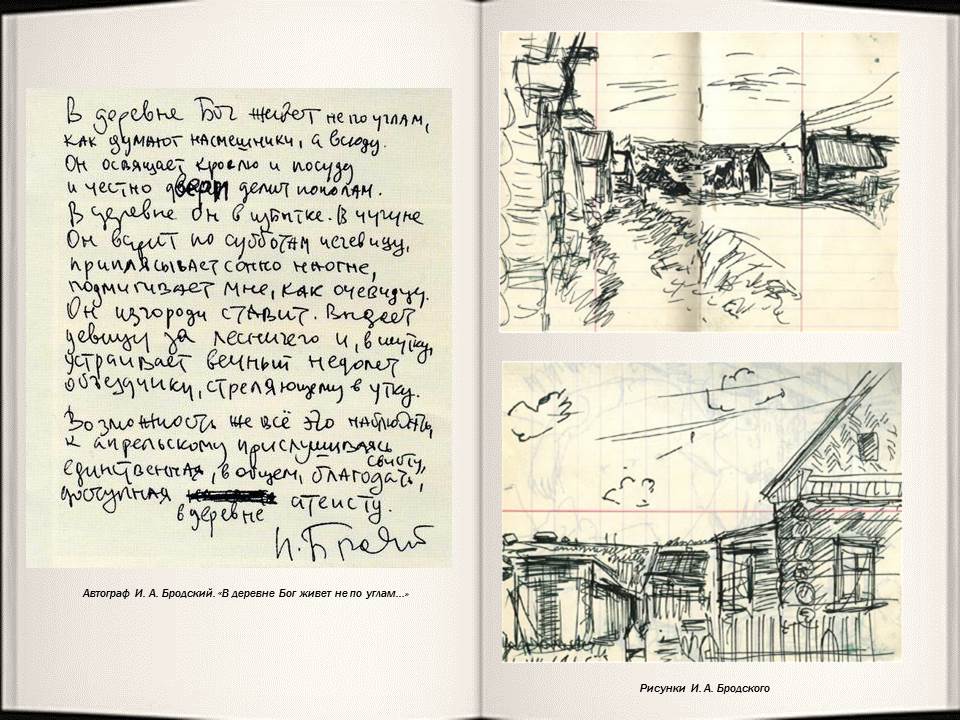 В деревне Бог живет не по углам,
как думают насмешники, а всюду.
Он освящает кровлю и посуду
и честно двери делит пополам.
В деревне он в избытке. В чугуне
Он варит по субботам чечевицу,
приплясывает сонно на огне,
подмигивает мне, как очевидцу.
Он изгороди ставит. Выдает
девицу за лесничего и, в шутку,
устраивает вечный недолет
объездчику, стреляющему в утку.
Возможность же всё это наблюдать,
к апрельскому прислушиваясь свисту,
единственная, в общем, благодать,
доступная в деревне атеисту.
И. Бродский
Автограф И. А. Бродский. «В деревне Бог живет не по углам...»
Рисунки И. А. Бродского